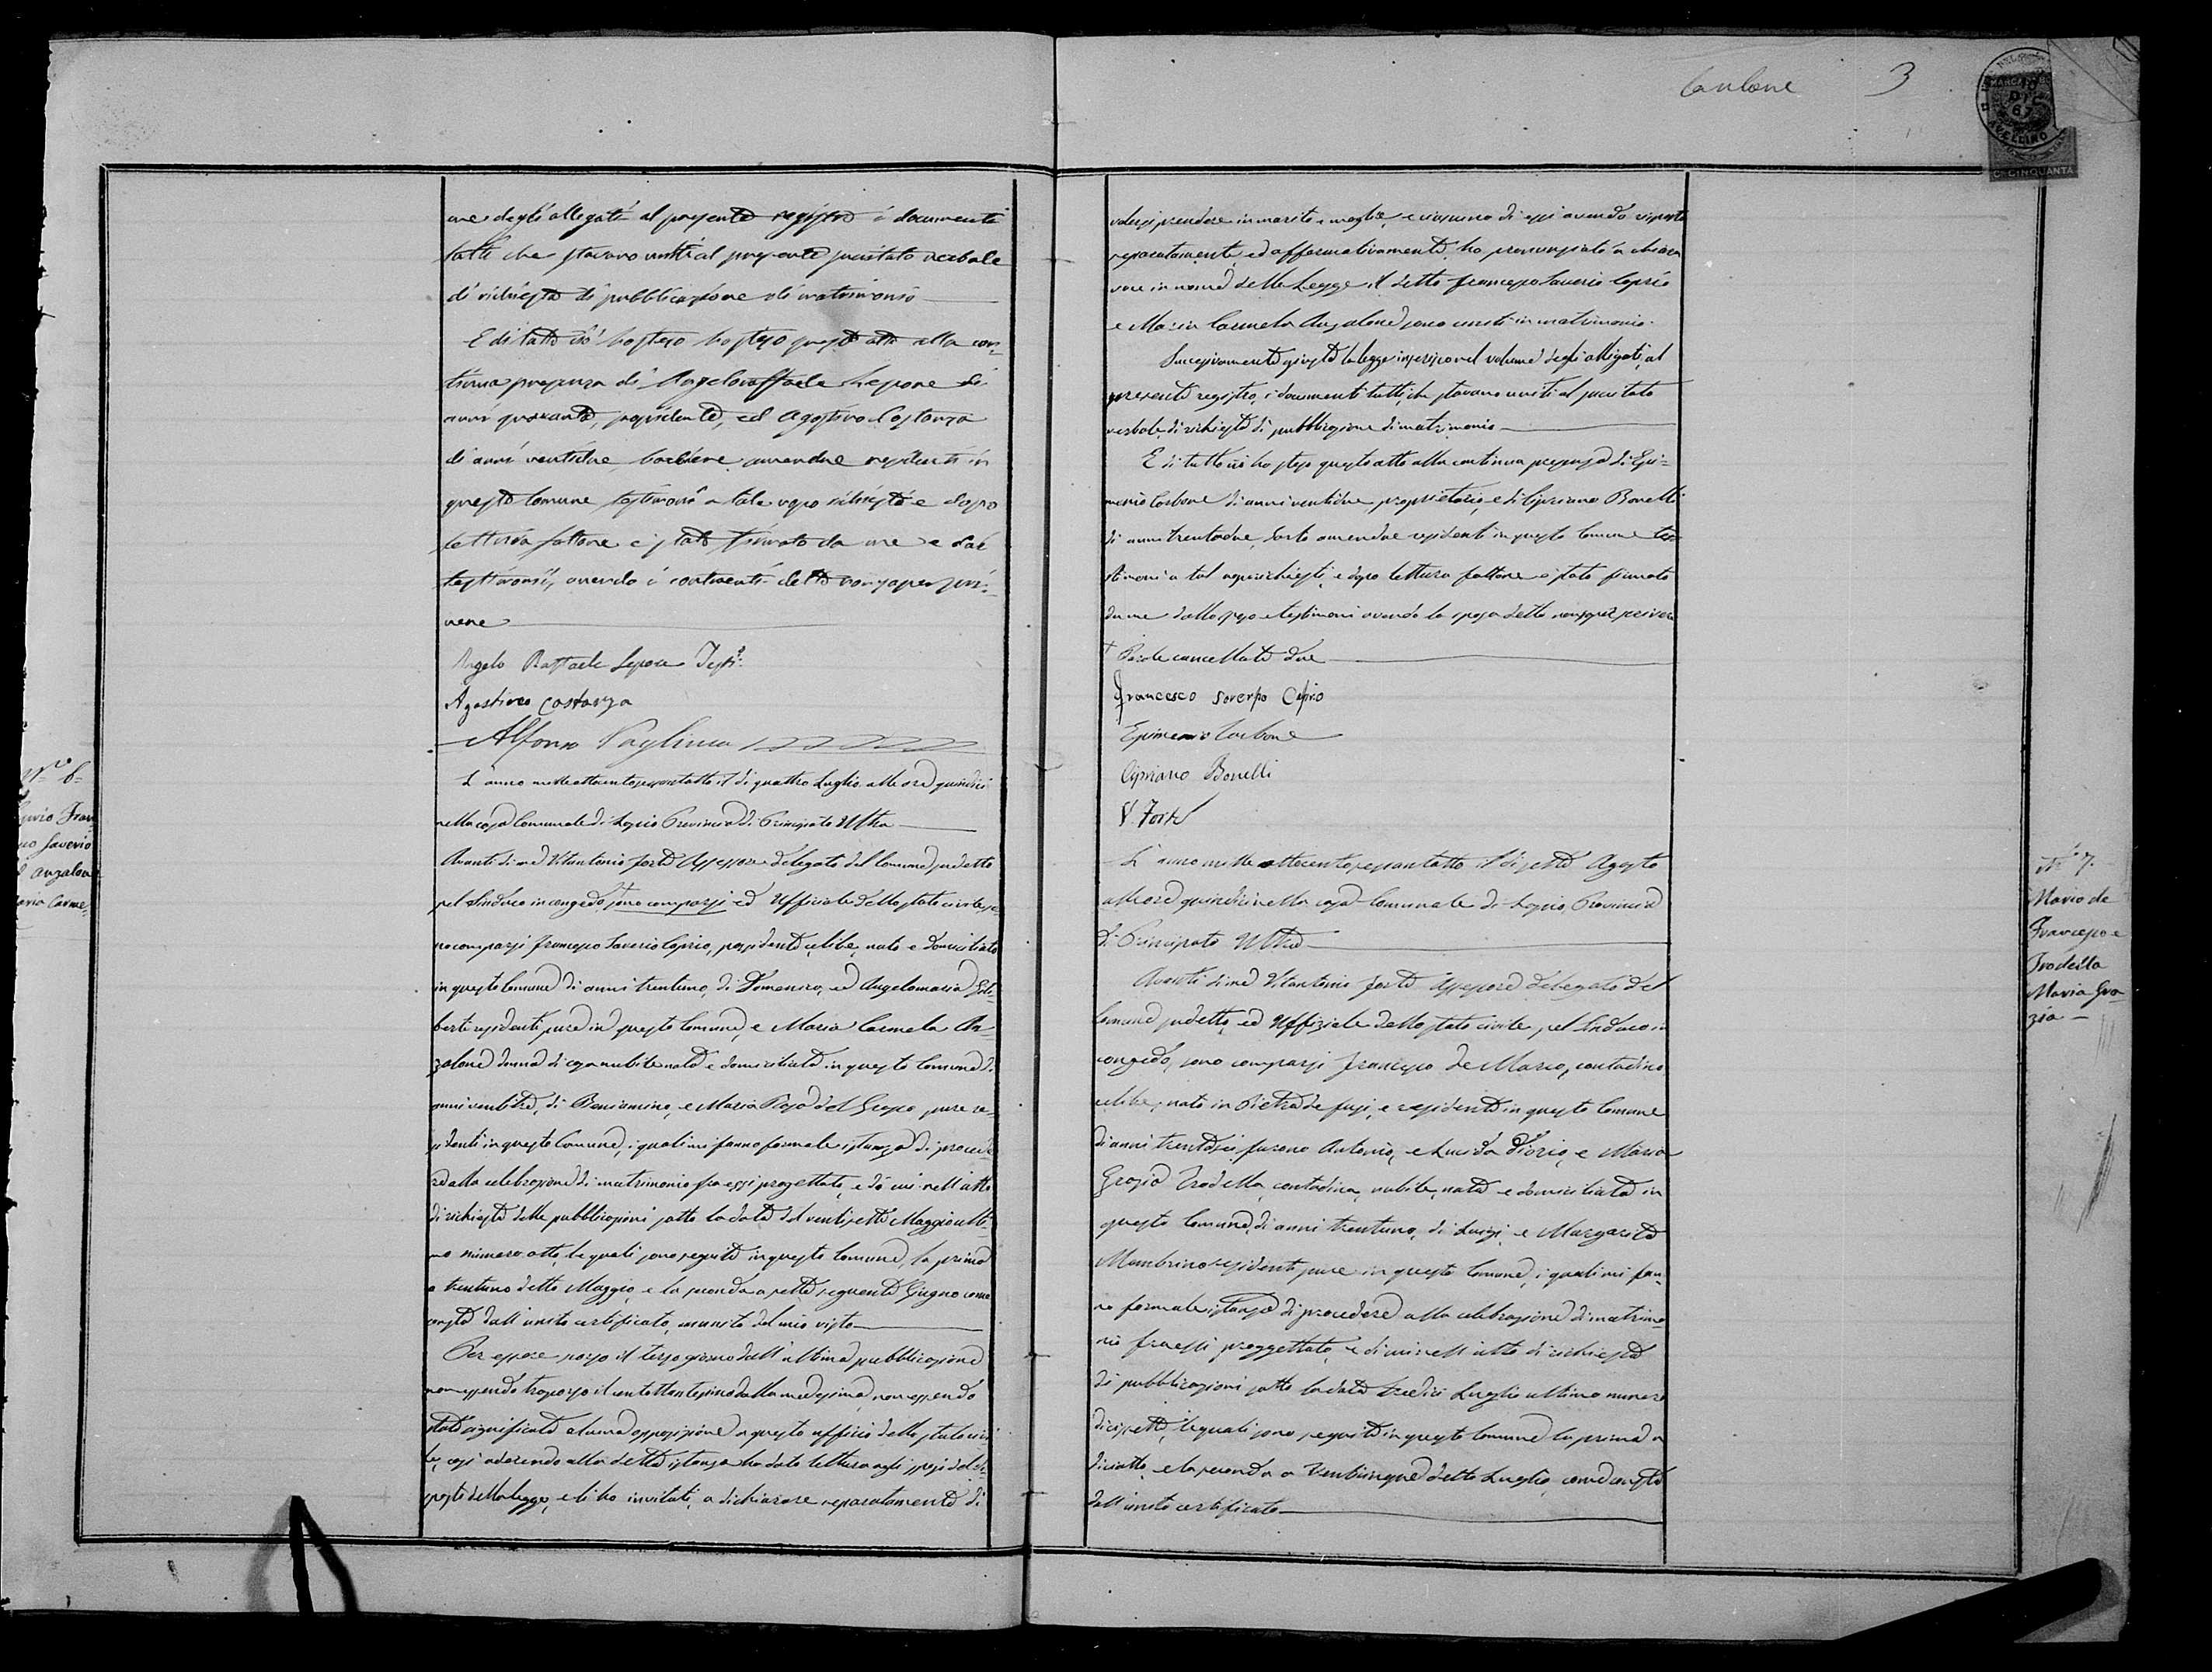 me degli allegati al presente registro i documenti
tutti che stavano uniti al presente precitato verbale
di richiesta di pubblicazione di matrimonio
E di tutto ciò ho steso questo atto alla con-
tinua presenza di Angeloraffaele Lepore di
anni quaranta, possidente, ed Agostino Costanza
di anni ventidue barbiere amendue residenti in
questo Comune testimoni a tale uopo richiesti e dopo
lettura fattane è stato firmato da me e dai
testimoni, avendo i contraenti detto non saper scri-
vere
Angelo Raffaele Lepore Testi.
Agostino Costanza
Alfonso Pagliuca
N.º 6
Caprio Fran
co Saverio
ed Anzalone
Maria Carme-
L'anno mille ottocento sessantotto il dì quattro Luglio alle ore quindici
nella casa Comunale di Lapio Provincia di Principato Ultra
Avanti di me Vitantonio Forte Assessore delegato del Comune sudetto
pel Sindaco in congedo sono comparsi ed Ufficiale dello stato civile, so-
no comparsi Francesco Saverio Caprio, possidente celibe, nato e domiciliato
in questo Comune di anni trentuno, di Domenico, ed Angelamaria
berti residenti pure in questo Comune, e Maria Carmela An-
zalone donna di casa nubile nata e domiciliata in questo Comune di
anni ventitre, di Beniamino, e Maria Rosa del Grosso, pure re-
sidenti in questo Comune, i quali mi fanno formale istanza di procede-
re alla celebrazione di matrimonio fra essi progettato, e di cui nell'atto
di richiesta delle pubblicazioni sotto la data del ventisette Maggio ulti-
mo numero otto, le quali sono seguite in questo Comune, la prima
a trentuno detto Maggio, e la seconda a sette seguente Giugno come
consta dall'unito certificato, munito del mio visto
Per essere scorso il terzo giorno dall'ultima pubblicazione
non essendo trascorso il centottantesimo dalla medesima, non essendo
stata significata alcuna opposizione a questo ufficio dello stato civi
le, così aderendo alla detta istanza ho dato lettura agli sposi del di-
sposto della legge, e li ho invitati a dichiarare separatamente di
Carbone 3
AVELLINO
C. CINQUANTA
volersi prendere in marito e moglie, e ciascuno di essi avendo risposto
separatamente ed affermativamente, ho pronunziato a chiara
voce in nome della Legge il detto Francesco Saverio Caprio
e Maria Carmela Anzalone sono uniti in matrimonio.
Successivamente giusta la legge inserisco nel volume degli allegati al
presente registro, i documenti tutti, che stavano uniti al precitato
verbale di richiesta di pubblicazione di matrimonio
E di tutto ciò ho steso questo atto alla continua presenza di Epi-
menio Carbone di anni ventidue, proprietario, e di Cipriano Bonelli
di anni trentadue, sarto amendue residenti in questo Comune tes-
timoni a tal uopo richiesti, e dopo lettura fattane è stato firmato
da me dallo sposo e testimoni avendo la sposa detto non saper scrivere
† Parole cancellate due
Francesco Saverio Caprio
Epimenio Carbone
Cipriano Bonelli
V. Forte
L'anno mille ottocento sessantotto il dì sette Agosto
alle ore quindici nella casa Comunale di Lapio, Provincia
di Principato Ultra
Avanti di me Vitantonio Forte Assessore delegato del
Comune sudetto, ed Uffiziale dello stato civile pel Sindaco in
congedo, sono comparsi Francesco de Marco, contadino
celibe, nato in Pietra de fusi, e residente in questo Comune
di anni trentasei, furono Antonio, e Lucida d'Iorio, e Maria
Grazia Trodella, contadina, nubile, nata e domiciliata in
questo Comune, di anni trentuno, di Luigi, e Margarita
Mambrino residenti pure in questo Comune, i quali mi fan-
no formale istanza di procedere alla celebrazione di matrimo-
nio fra essi proggettato, e di cui nell'atto di richiesta
di pubblicazioni sotto la data tredici Luglio ultimo numero
dicisette, le quali sono seguite in questo Comune la prima a
diciotto, e la seconda a venticinque detto Luglio, come consta
dall'unito certificato
N.º 7.
Marco de
Francesco e
Trodella
Maria Gra-
zia